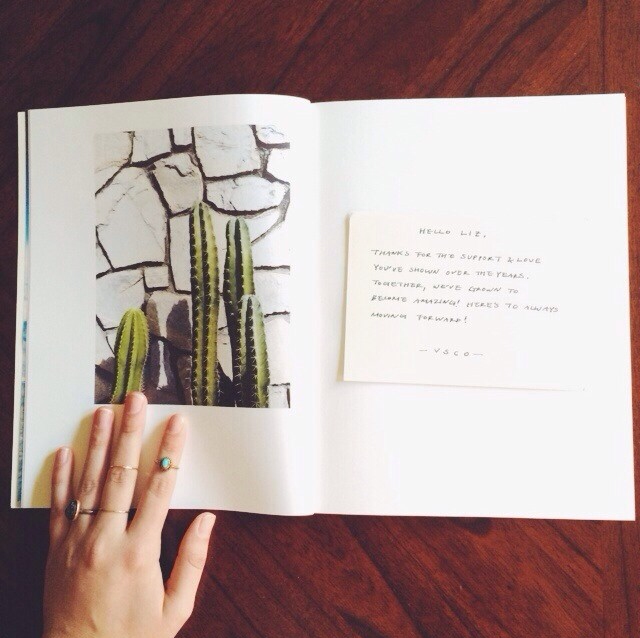 HELLO LIZ,
THANKS FOR THE SUPPORT & LOVE
YOU'VE SHOWN OVER THE YEARS.
TOGETHER, WE'VE GROWN TO
BECOME AMAZING! HERE'S TO ALWAYS
MOVING FORWARD!
— VSCO —